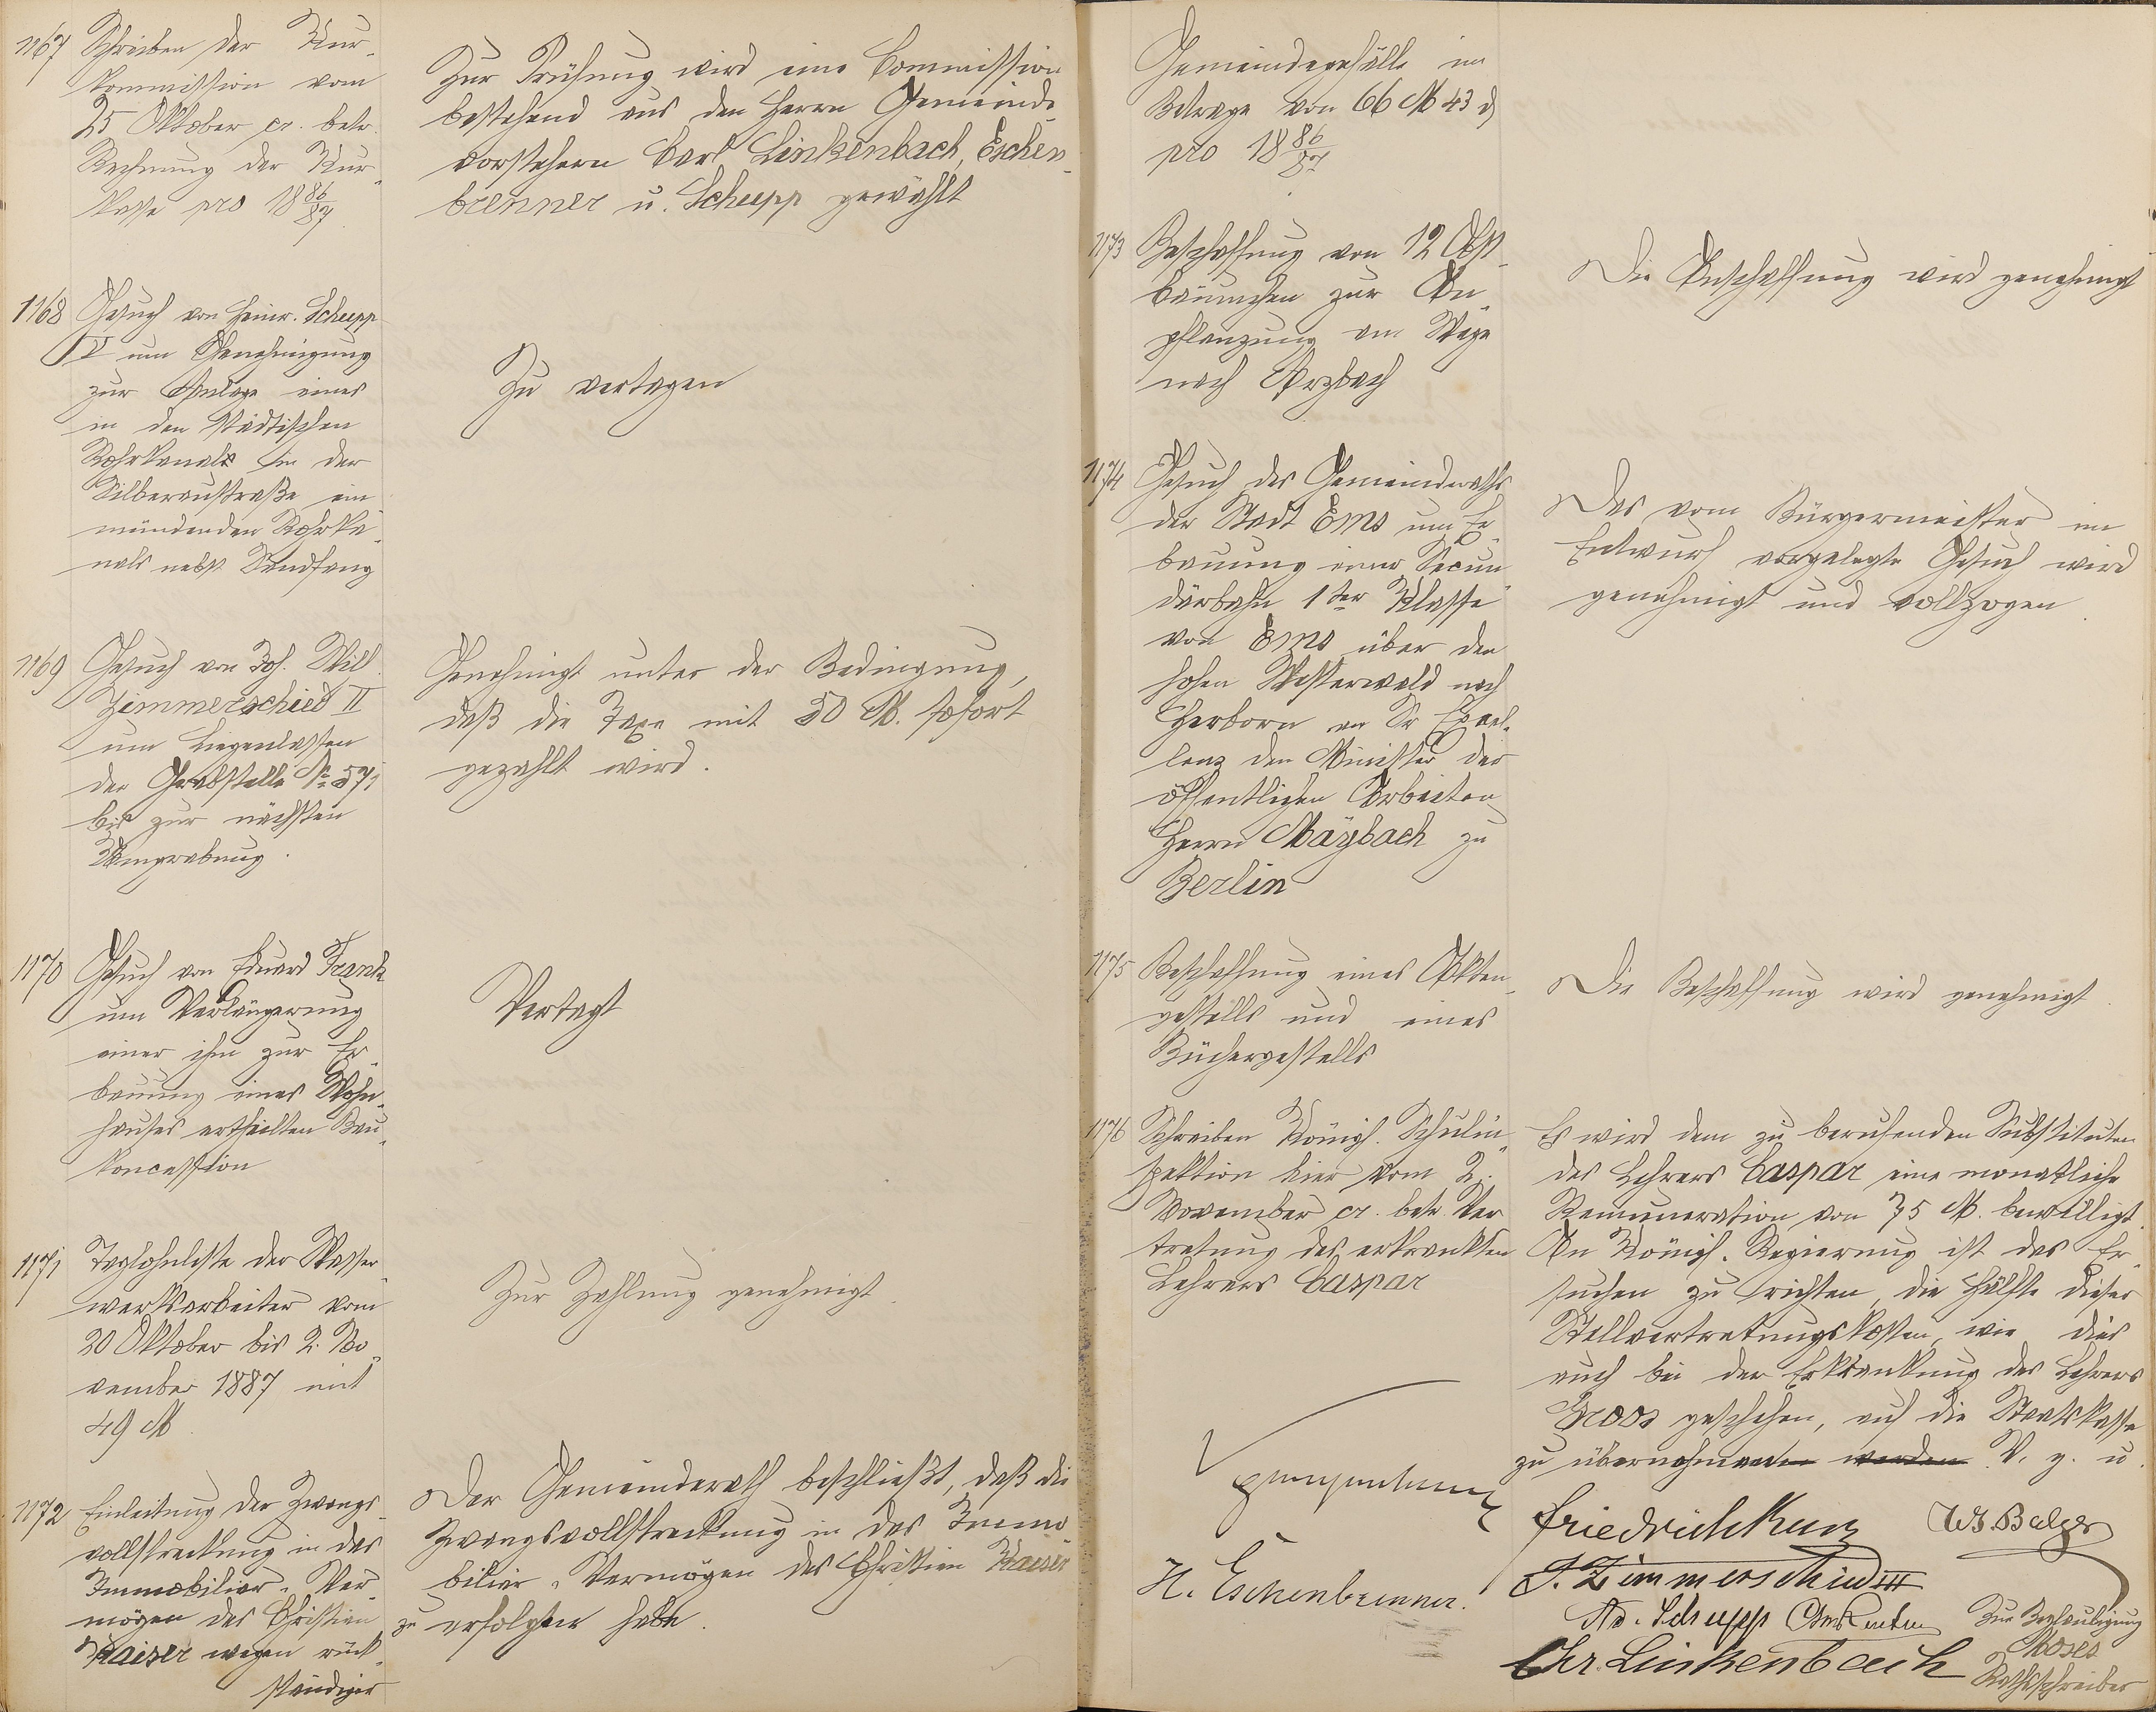 1167 Schreiben der Kur-
kommission vom
25 Oktober cr. betr.
Rechnung der Kur-
kasse pro 1886/87.
Zur Prüfung wird eine Commission
bestehend aus den Herrn Gemeinde-
vorstehern Carl Linkenbach, Eschen-
brenner u. Schupp gewählt
1168 Gesuch von Heinr. Schupp
V um Genehmigung
zur Anlage eines
in den städtischen
Rohrkanals in der
Silberaustraße ein-
mündenden Rohrka-
nals nebst Sandfang
Zu vertagen
1169 Gesuch von Joh. Wilh.
Zimmerschied II
um Liegenlassen
der Grabstelle No 571
bis zur nächsten
Umgrabung.
Genehmigt unter der Bedingung,
daß die Taxe mit 50 M. sofort
gezahlt wird.
1170 Gesuch von Eduard Frank
um Verlängerung
einer ihm zur Er-
bauung eines Wohn-
hauses ertheilten Bau-
koncession
Vertagt
1171 Taglohnliste der Wasser-
werksarbeiter vom
20 Oktober bis 2. No-
vember 1887 mit
49 M
Zur Zahlung genehmigt.
1172 Einleitung der Zwangs-
vollstreckung in das
Immobiliar-Ver-
mögen des Christian
Kaiser wegen rück-
ständiger
Der Gemeinderath beschließt, daß die
Zwangsvollstreckung in das Immo-
biliar-Vermögen des Christian Kaiser
zu erfolgen habe.
Gemeindegefälle im
Betrage von 66 M 43 d
pro 1886/87.
1173 Beschaffung von 12 Obst-
bäumchen zur An-
pflanzung am Wege
nach Arzbach
Die Anschaffung wird genehmigt
1174 Gesuch des Gemeinderaths
der Stadt Ems um Er-
bauung einer Secun-
därbahn 1ter Klasse
von Ems über den
hohen Westerwald nach
Herborn an Sr Excel-
lenz den Minister der
öffentlichen Arbeiten
Herrn Maybach zu
Berlin
Das vom Bürgermeister im
Entwurf vorgelegte Gesuch wird
genehmigt und vollzogen.
1175 Beschaffung eines Akten-
gestells und eines
Büchergestells
Die Beschaffung wird genehmigt.
1176 Schreiben Königl. Schulin-
spektion hier vom 2.
November cr. betr. Ver-
tretung des erkrankten
Lehrers Caspar
Es wird dem zu berufenden Substituten
des Lehrers Caspar eine monatliche
Remuneration von 75 M. bewilligt.
An Königl. Regierung ist das Er-
suchen zu richten, die Hälfte dieser
Stellvertretungskosten, wie dies
auch bei der Erkrankung des Lehrers
Groos geschehen, auf die Staatskasse
zu übernehmen werden V. g. u.
Friedrich Kunz W. Balzer
J. Zimmerschied III
H. Eschenbrenner.
Ad. Schupp
Chr. Linkenbach
Zur Beglaubigung
Moses
Rathsschreiber